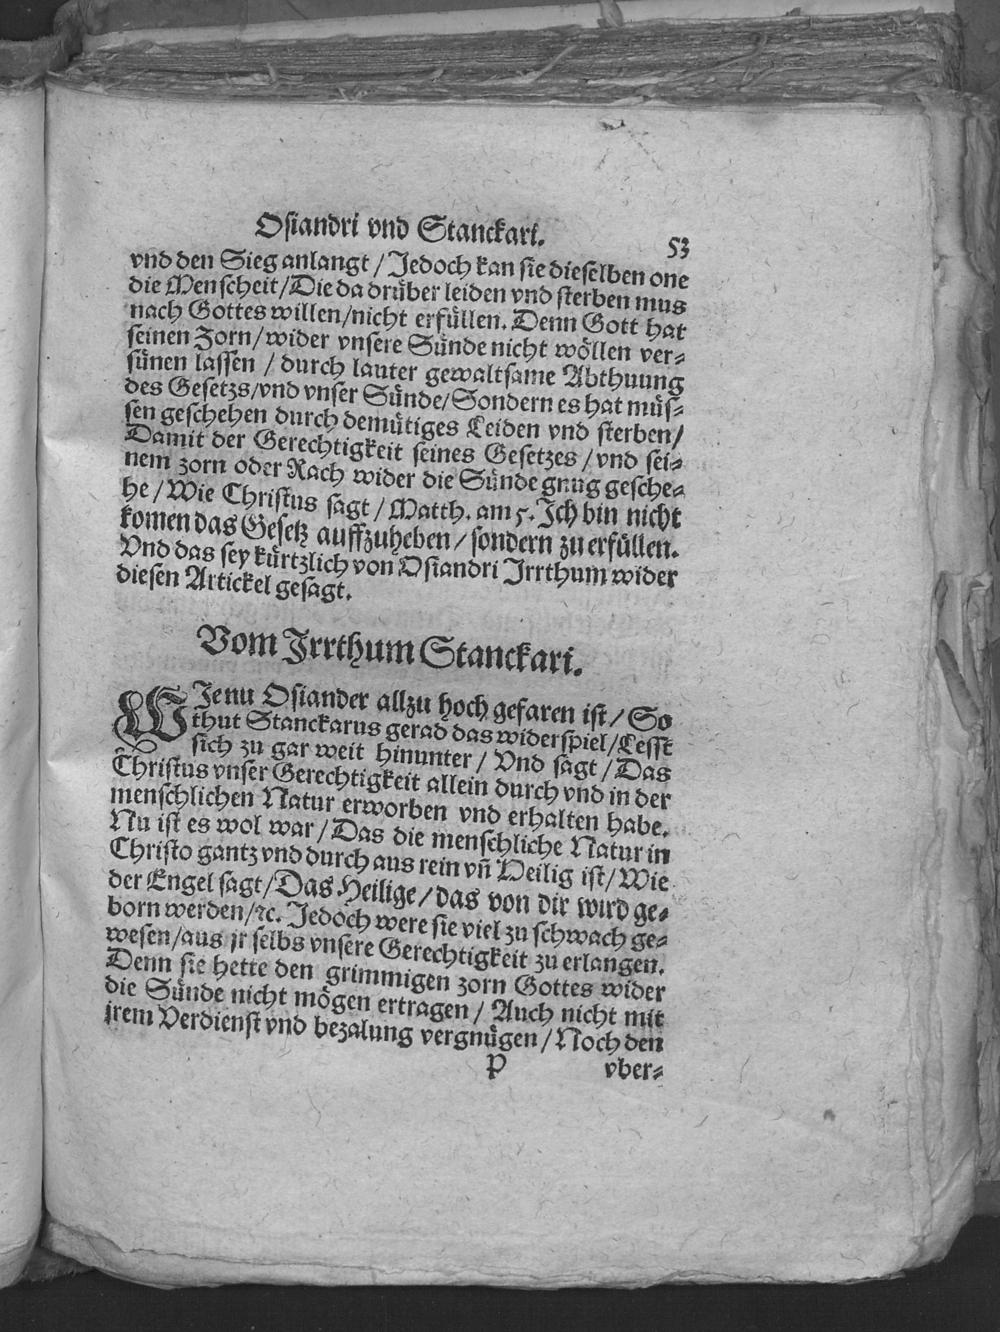 Osiandri vnd Stanckari. 53
vnd den Sieg anlangt / Jedoch kan sie dieselben one
die Menscheit / Die da drüber leiden vnd sterben mus
nach Gottes willen / nicht erfüllen. Denn Gott hat
seinen Zorn / wider vnsere Sünde nicht wöllen ver⸗
sünen lassen / durch lauter gewaltsame Abthuung
des Gesetzs / vnd vnser Sünde / Sondern es hat müs⸗
sen geschehen durch demütiges Leiden vnd sterben /
Damit der Gerechtigkeit seines Gesetzes / vnd sei⸗
nem zorn oder Rach wider die Sünde gnug gesche⸗
he / Wie Christus sagt / Matth. am 5. Ich bin nicht
komen das Gesetz auffzuheben / sondern zu erfüllen.
Vnd das sey kürtzlich von Osiandri Jrrthum wider
diesen Artickel gesagt.
Vom Jrrthum Stanckari.
WJe nu Osiander allzu hoch gefaren ist / So
thut Stanckarus gerad das widerspiel / Lesst
sich zu gar weit hinunter / Vnd sagt / Das
Christus vnser Gerechtigkeit allein durch vnd in der
menschlichen Natur erworben vnd erhalten habe.
Nu ist es wol war / Das die menschliche Natur in
Christo gantz vnd durch aus rein vñ Heilig ist / Wie
der Engel sagt / Das Heilige / das von dir wird ge⸗
born werden / ꝛc. Jedoch were sie viel zu schwach ge⸗
wesen / aus jr selbs vnsere Gerechtigkeit zu erlangen.
Denn sie hette den grimmigen zorn Gottes wider
die Sünde nicht mögen ertragen / Auch nicht mit
jrem Verdienst vnd bezalung vergnügen / Noch den
P vber⸗